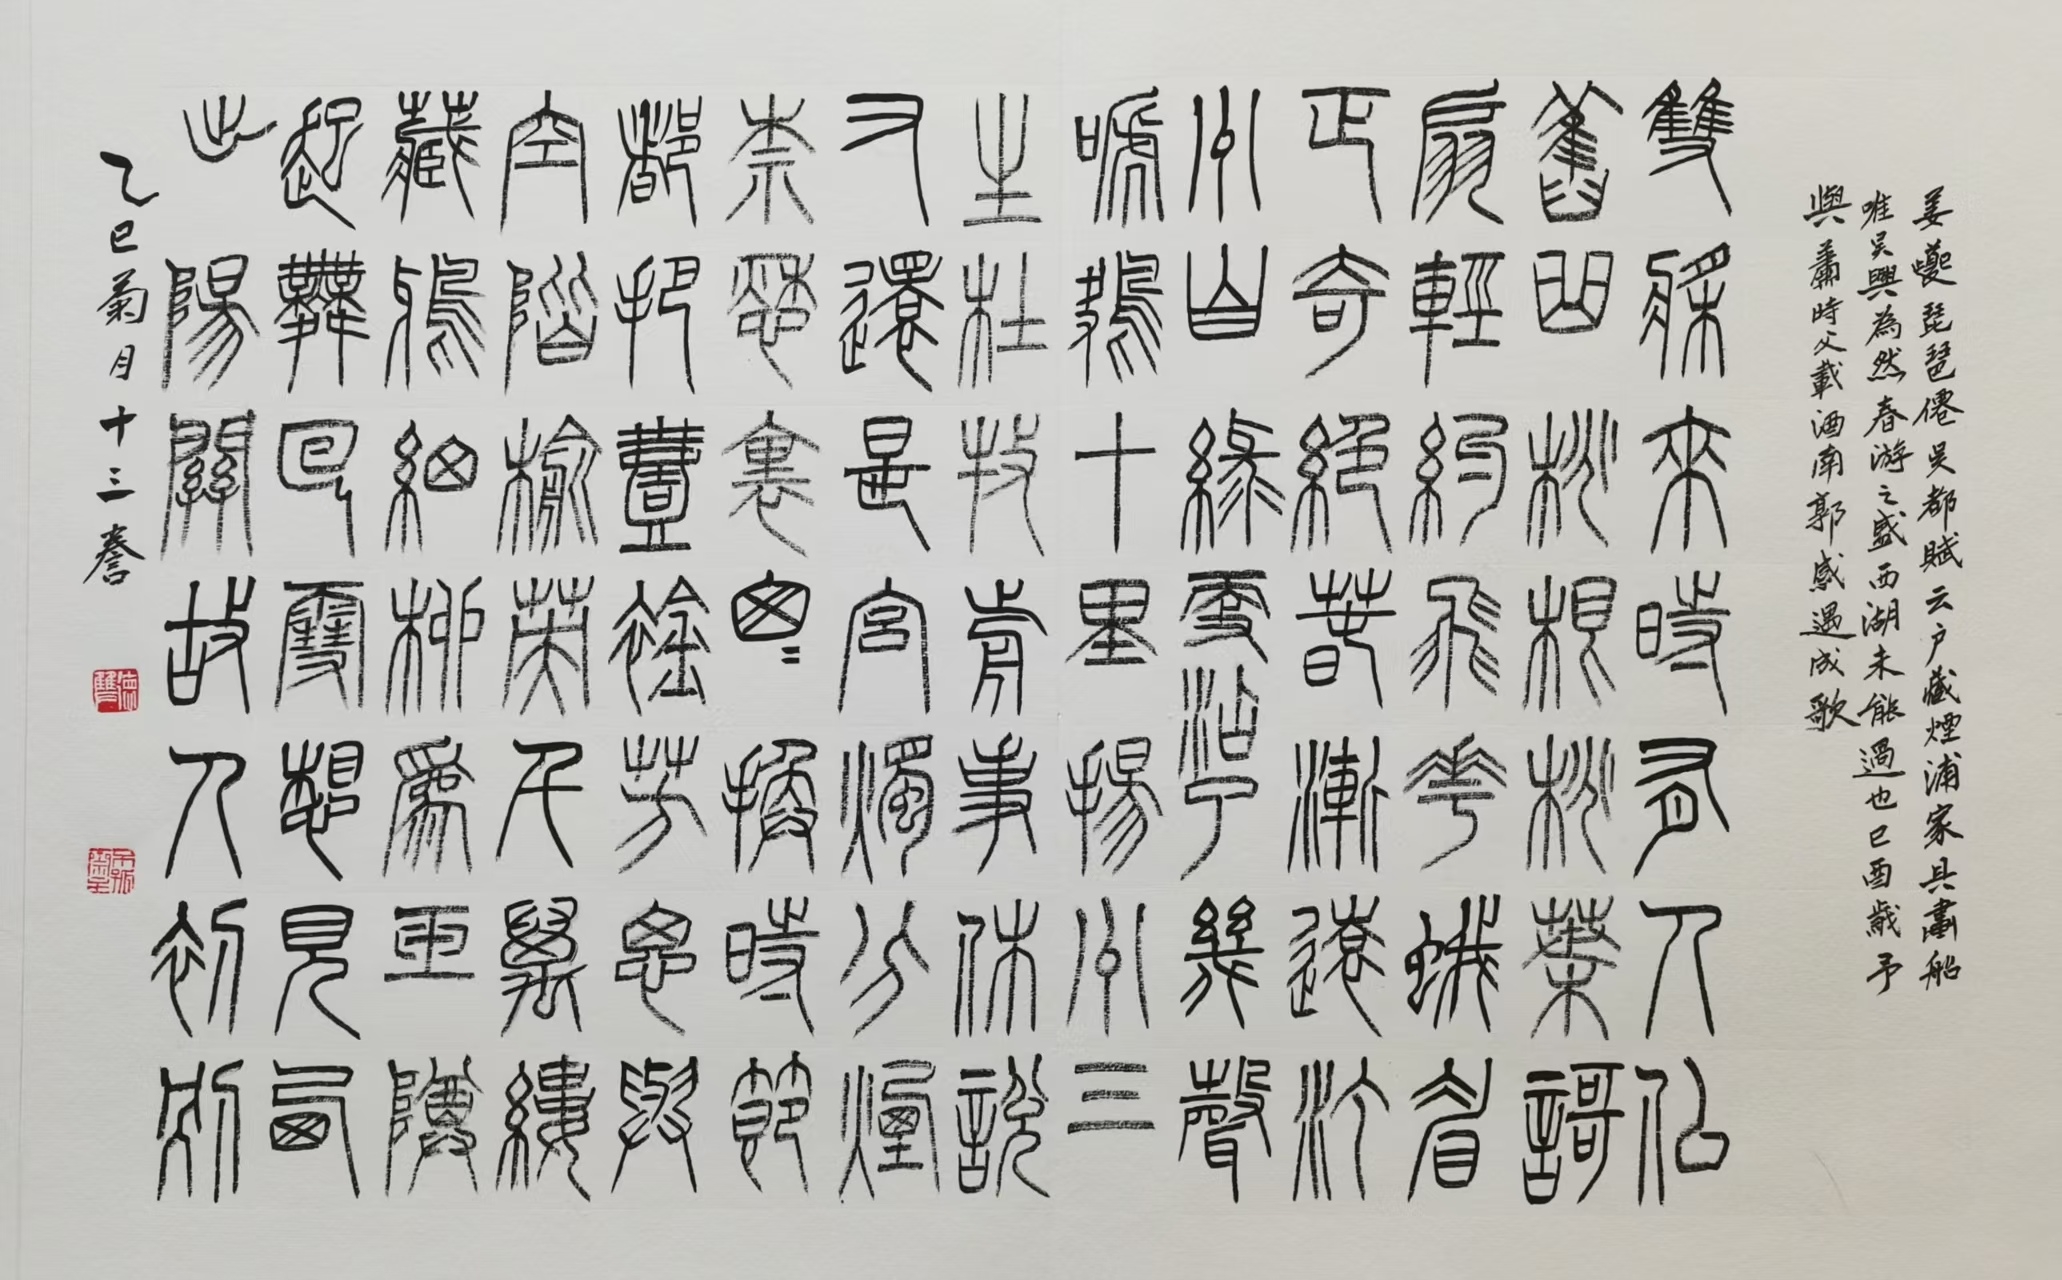 姜夔琵琶僊吳都賦云戶藏煙浦家具畫船
唯吳興為然春游之盛西湖未能過也己酉歲予
與蕭時父載酒南郭感遇成歌
雙槳來時有人似
舊曲桃根桃葉謌
扇輕約飛花蛾眉
正奇絕春漸遠汀
州自綠更添了幾聲
嗁鴂十里揚州三
生杜牧前事休說
又還是宮燭分煙
奈愁裏匆匆換時節
都把壹襟芳思與
空階榆莢千萬縷
藏鴉細柳為玉隩
起舞回雪想見西
出陽關故人初別
乙巳菊月十三謄